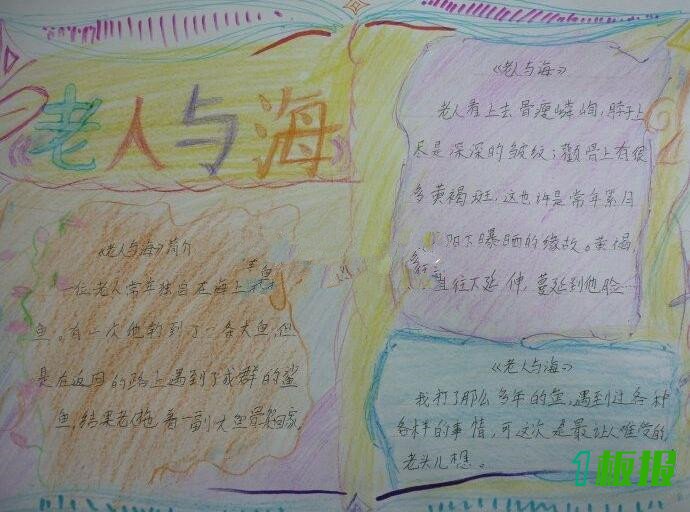 老人与海
《老人与海》简介
一位老人常年独自在海上
鱼。有一次他钓到了一条大鱼,但
是在返回的路上遇到了成群的鲨
鱼,结果老拖着一副大鱼骨架回家。
《老人与海》
老人看上去骨瘦嶙峋,脖子上
尽是深深的皱纹;颧骨上有很
多黄褐斑,这也许是常年累月
阳下曝晒的缘故。黄褐
往下延伸,蔓延到他脸…
《老人与海》
我打了那么多年的鱼,遇到过各种
各样的事情,可这次是最让人难受的
老头儿想。
1板报